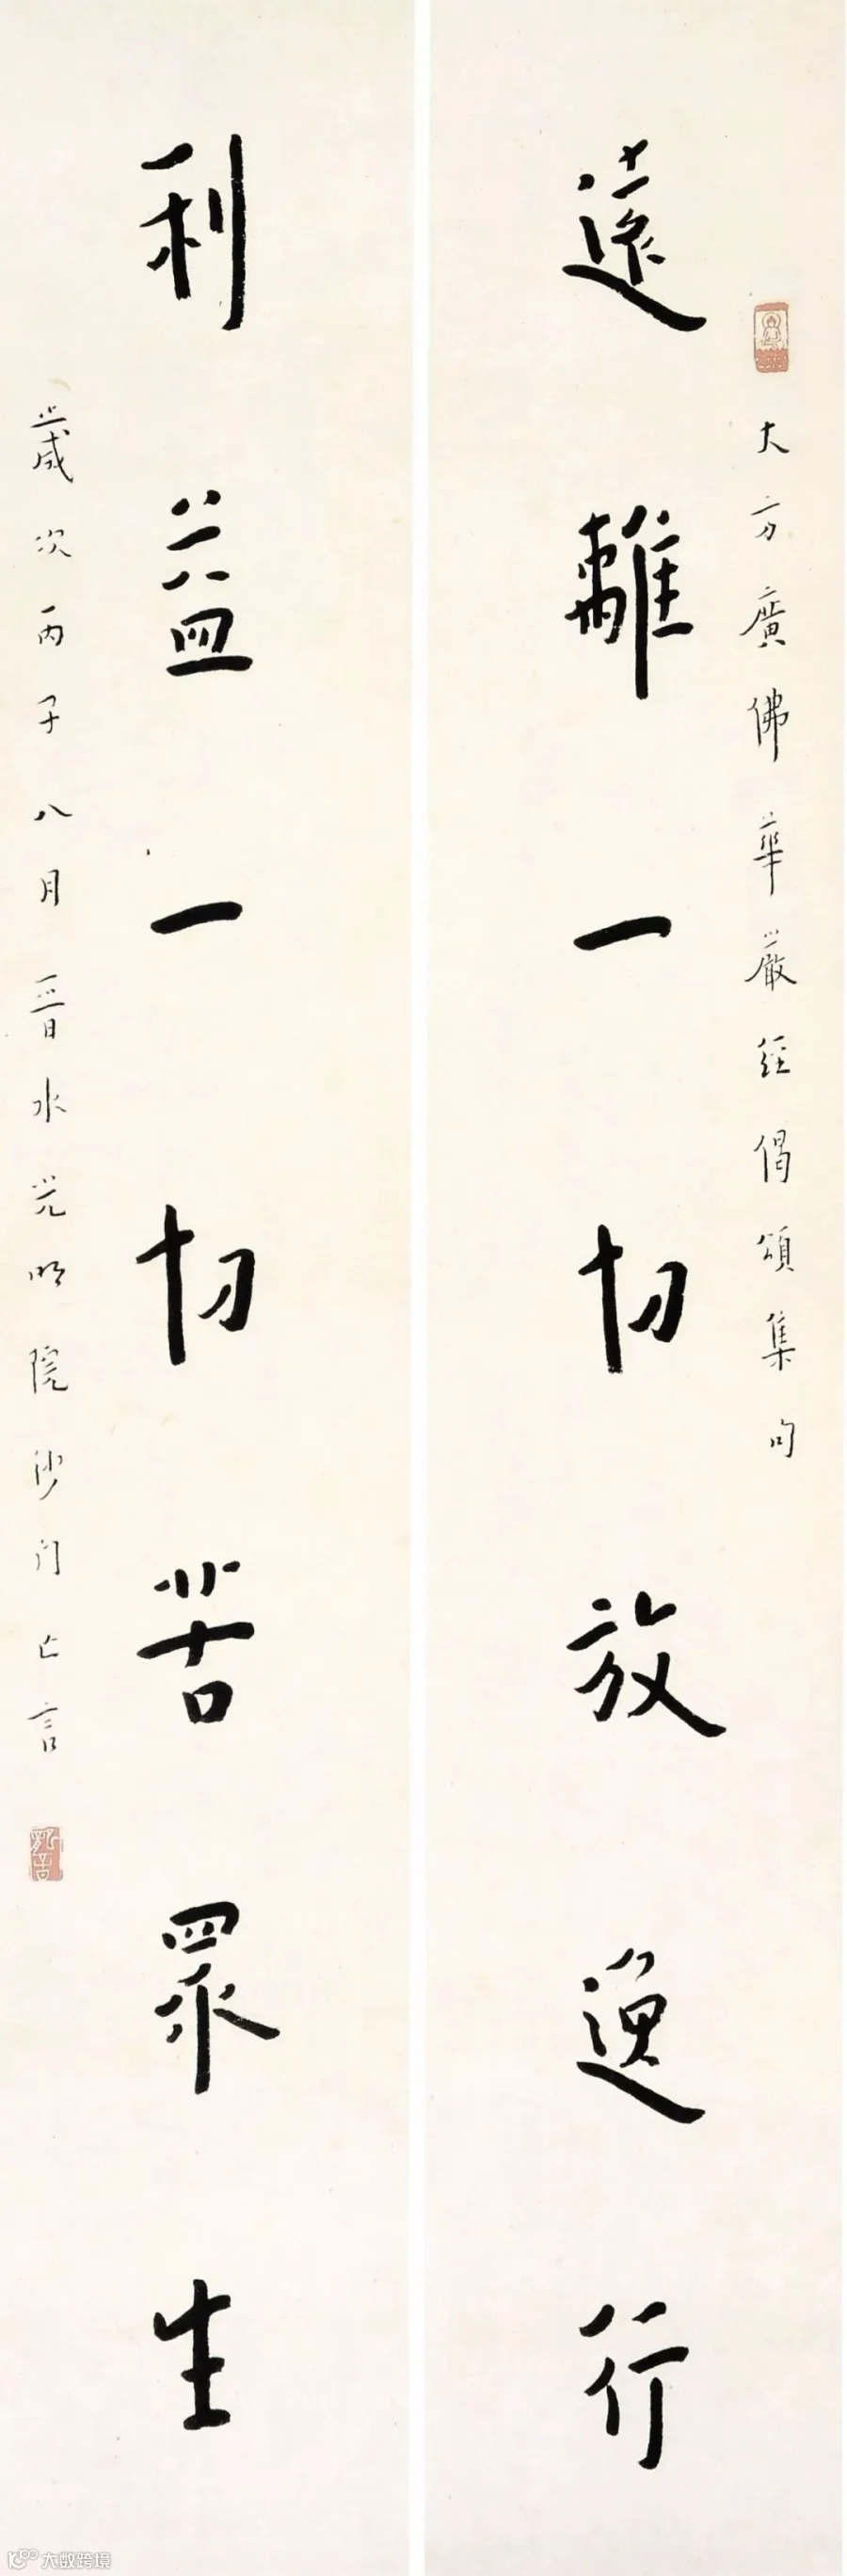 大方廣佛華嚴經偈頌集句
遠離一切放逸行
利益一切苦眾生
歲次丙子八月晉水光明院沙門亡言
大数跨境